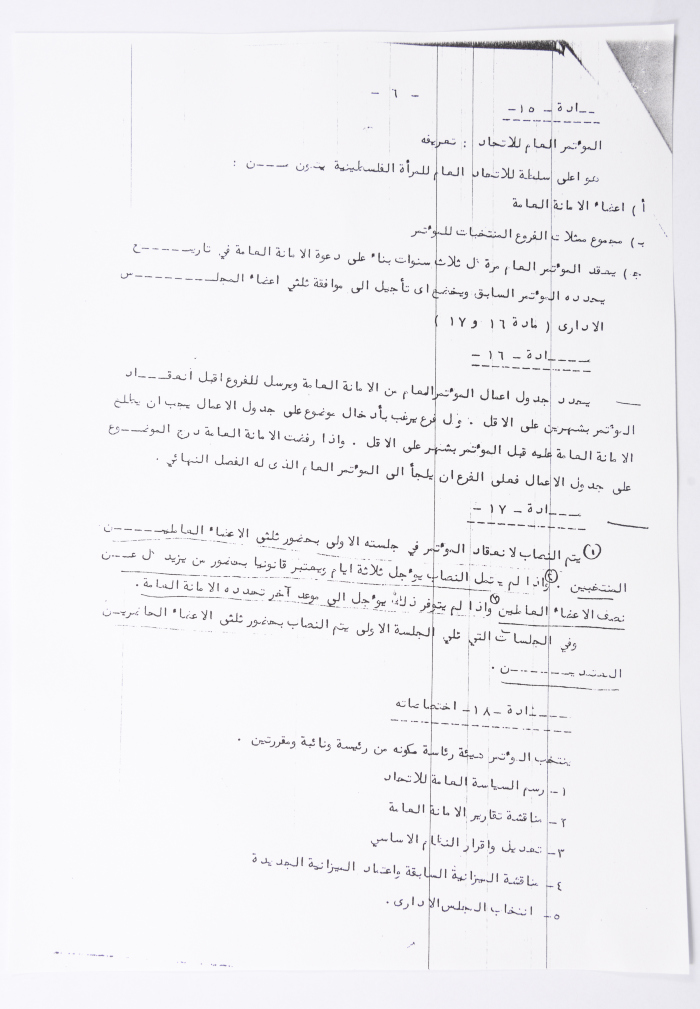 - ٦ -
مـــادة - ١٥ -
المؤتمر العام للاتحاد : تعريفه
هو اعلى سلطة للاتحاد العام للمرأة الفلسطينية يتكون مـــن :
أ ) اعضاء الامانة العامة
ب ) مجموع ممثلات الفروع المنتخبات للمؤتمر
ج ) يعقد المؤتمر العام مرة كل ثلاث سنوات بناء على دعوة الامانة العامة في تاريـــــخ
يحدده المؤتمر السابق ويخضع اى تأجيل الى موافقة ثلثي اعضاء المجلــــــــس
الادارى ( مادة ١٦ و ١٧ )
مـــــادة - ١٦ -
يحدد جدول اعمال المؤتمر العام من الامانة العامة ويرسل للفروع قبل انعقـــاد
المؤتمر بشهرين على الاقل . وكل فرع يرغب بأدخال موضوع على جدول الاعمال يجب ان يطلع
الامانة العامة عليه قبل المؤتمر بشهر على الاقل . واذا رفضت الامانة العامة درج الموضـــوع
على جدول الاعمال فعلى الفرع ان يلجأ الى المؤتمر العام الذى له الفصل النهائي .
مـــــادة - ١٧ -
(١) يتم النصاب لانعقاد المؤتمر في جلسته الاولى بحضور ثلثي الاعضاء العاملـيـــــن
المنتخبين . (٢) واذا لم يكتمل النصاب يؤجل ثلاثة ايام ويعتبر قانونيا بحضور من يزيد كل عـــن
نصف الاعضاء العاملين (٣) واذا لم يتوفر ذلك يؤجل الى موعد آخر تحدده الامانة العامة .
وفي الجلسات التي تلي الجلسة الاولى يتم النصاب بحضور ثلثى الاعضاء الحاضريـن
المنتدبيـــــــن .
مـــــادة - ١٨ - اختصاصاته
ينتخب المؤتمر هيئة رئاسة مكونه من رئيسة ونائبة ومقررتين .
١- رسم السياسة العامة للاتحاد
٢- مناقشة تقارير الامانة العامة
٣- تعديل واقرار النظام الاساسي
٤- مناقشة الميزانية السابقة واعتماد الميزانية الجديدة
٥- انتخاب المجلس الادارى .